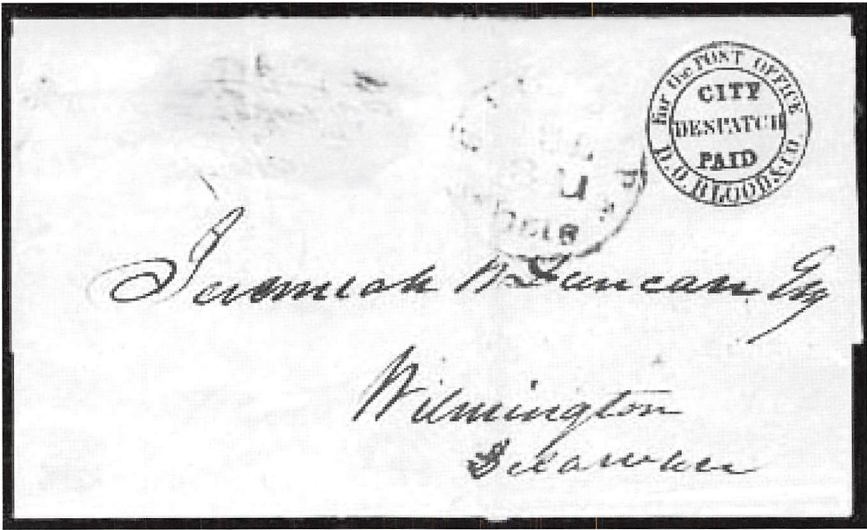 For the POST OFFICE
CITY
DESPATCH
PAID
D.O. BLOOD & CO.
Jeremiah W Duncan Esq
Wilmington
Delaware